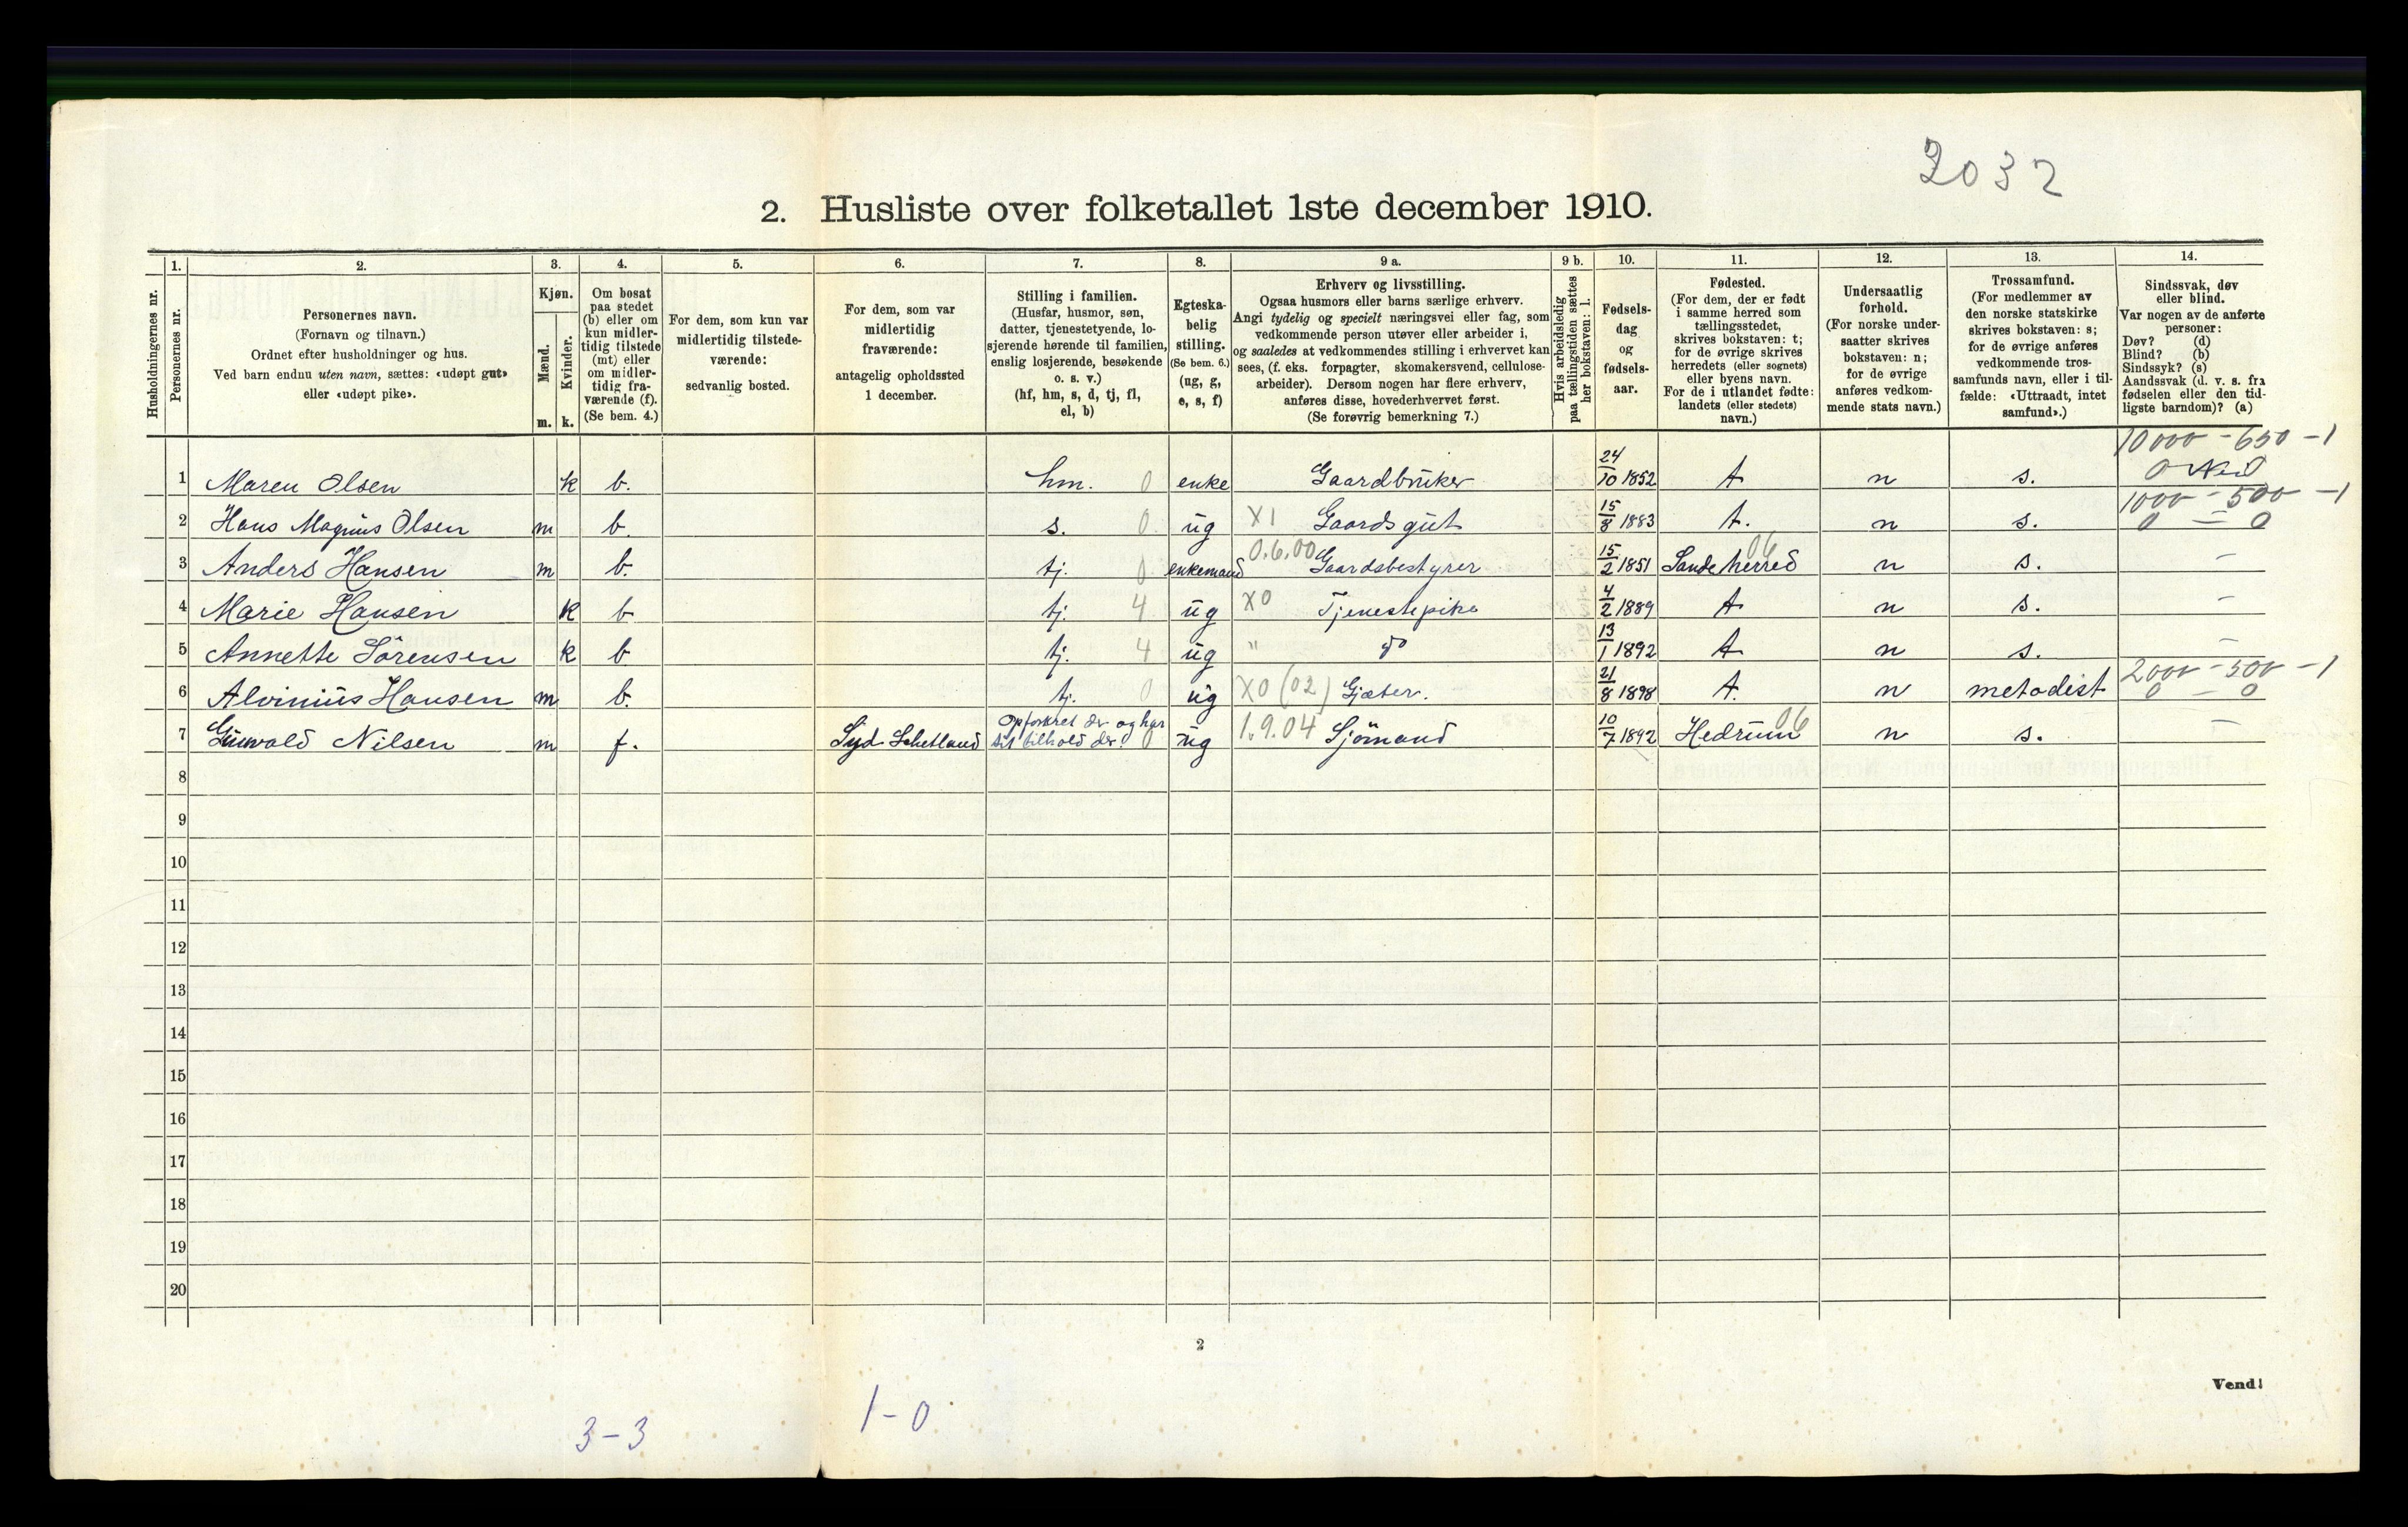 2032
2. Husliste over folketallet 1ste december 1910.
Husholdningernes nr.
1.
Personernes nr.
2.
Personernes navn.
(Fornavn og tilnavn.)
Ordnet efter husholdninger og hus.
Ved barn endnu uten navn, sættes: «udøpt gut»
eller «udøpt pike».
3.
Kjøn.
Mænd.
Kvinder.
m. k.
4.
Om bosat
paa stedet
(b) eller om
kun midler-
tidig tilstede
(mt) eller
om midler-
tidig fra-
værende (f).
(Se bem. 4.)
5.
For dem, som kun var
midlertidig tilstede-
værende:
sedvanlig bosted.
6.
For dem, som var
midlertidig
fraværende:
antagelig opholdssted
1 december.
7.
Stilling i familien.
(Husfar, husmor, søn,
datter, tjenestetyende, lo-
sjerende hørende til familien,
enslig losjerende, besøkende
o. s. v.)
(hf, hm, s, d, tj, fl,
el, b)
8.
Egteska-
belig
stilling.
(Se bem. 6.)
(ug, g,
e, s, f)
9 a.
Erhverv og livsstilling.
Ogsaa husmors eller barns særlige erhverv.
Angi tydelig og specielt næringsvei eller fag, som
vedkommende person utøver eller arbeider i,
og saaledes at vedkommendes stilling i erhvervet kan
sees, (f. eks. forpagter, skomakersvend, cellulose-
arbeider). Dersom nogen har flere erhverv,
anføres disse, hovederhvervet først.
(Se forøvrig bemerkning 7.)
9 b.
Hvis arbeidsledig
paa tællingstiden sættes
her bokstaven: l.
10.
Fødsels-
dag
og
fødsels-
aar.
11.
Fødested.
(For dem, der er født
i samme herred som
tællingsstedet,
skrives bokstaven: t;
for de øvrige skrives
herredets (eller sognets)
eller byens navn.
For de i utlandet fødte:
landets (eller stedets)
navn.)
12.
Undersaatlig
forhold.
(For norske under-
saatter skrives
bokstaven: n;
for de øvrige
anføres vedkom-
mende stats navn.)
13.
Trossamfund.
(For medlemmer av
den norske statskirke
skrives bokstaven: s;
for de øvrige anføres
vedkommende tros-
samfunds navn, eller i til-
fælde: «Uttraadt, intet
samfund».)
14.
Sindssvak, døv
eller blind.
Var nogen av de anførte
personer:
Døv? (d)
Blind? (b)
Sindssyk? (s)
Aandssvak (d. v. s. fra
fødselen eller den tid-
ligste barndom)? (a)
10000 - 650 - 1
1 Maren Olsen k b. hm. 0 enke Gaardbruker 24/10 1852 t n s. 0 Nei 0
1000 - 500 - 1
2 Hans Magnus Olsen m b. s. 0 ug X1 Gaardsgut 15/8 1883 t. n s. 0 — 0
3 Anders Hansen m b. tj. 0 enkemand 0.6.00 Gaardsbestyrer 15/2 1851 Sandeherred 06 n s. —
4 Marie Hansen k b tj. 4 ug X0 Tjenestepike 4/2 1889 t n s. —
5 Annette Sörensen k b tj. 4 ug " do 13/1 1892 t n s. —
2000 - 500 - 1
6 Alvinius Hansen m b. tj. 0 ug X0 (02) Gjæter. 21/8 1898 t. n metodist 0 — 0
7 Gunvald Nilsen m f. Syd Schetland Opfostret der og har sit tilhold der. 0 ug 1.9.04 Sjömand 10/7 1892 Hedrum 06 n s. —
8
9
10
11
12
13
14
15
16
17
18
19
20
2
Vend!
3-3
1-0